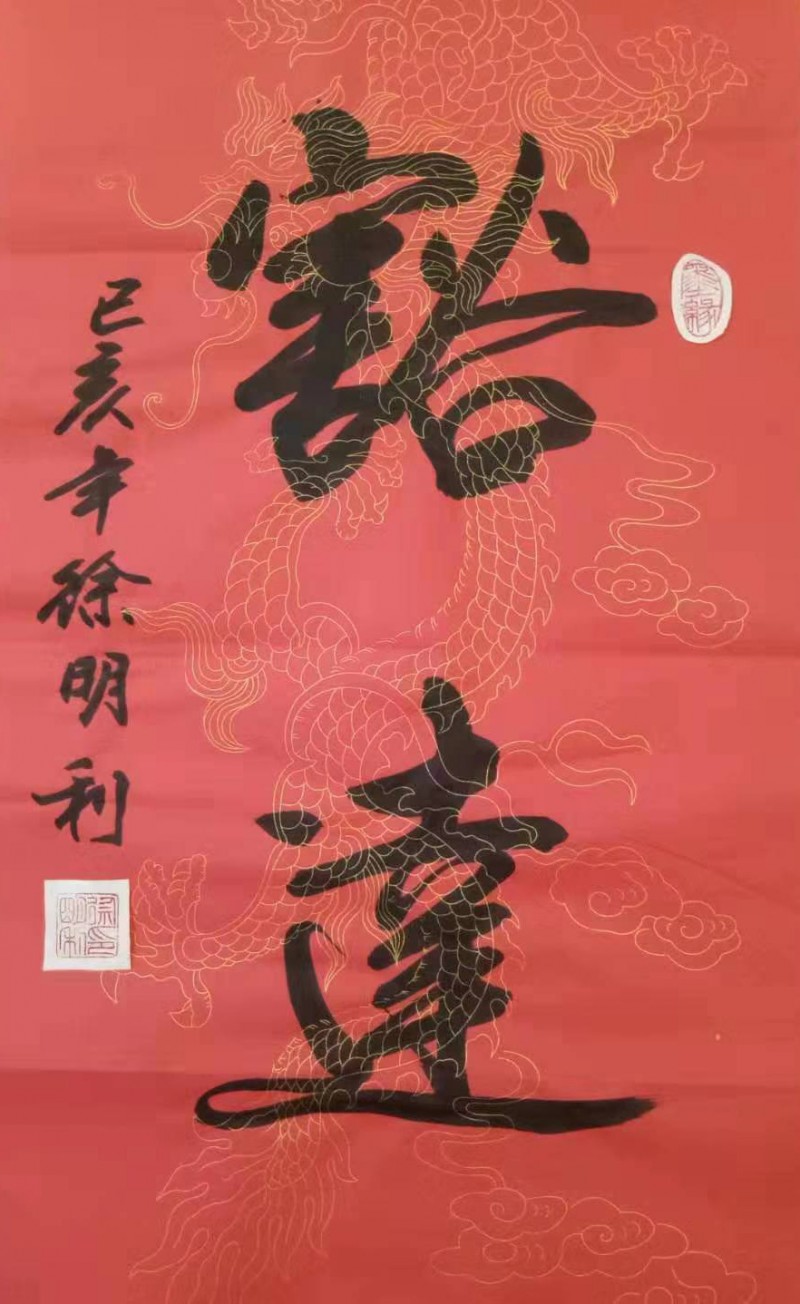 豁達
己亥年徐明利